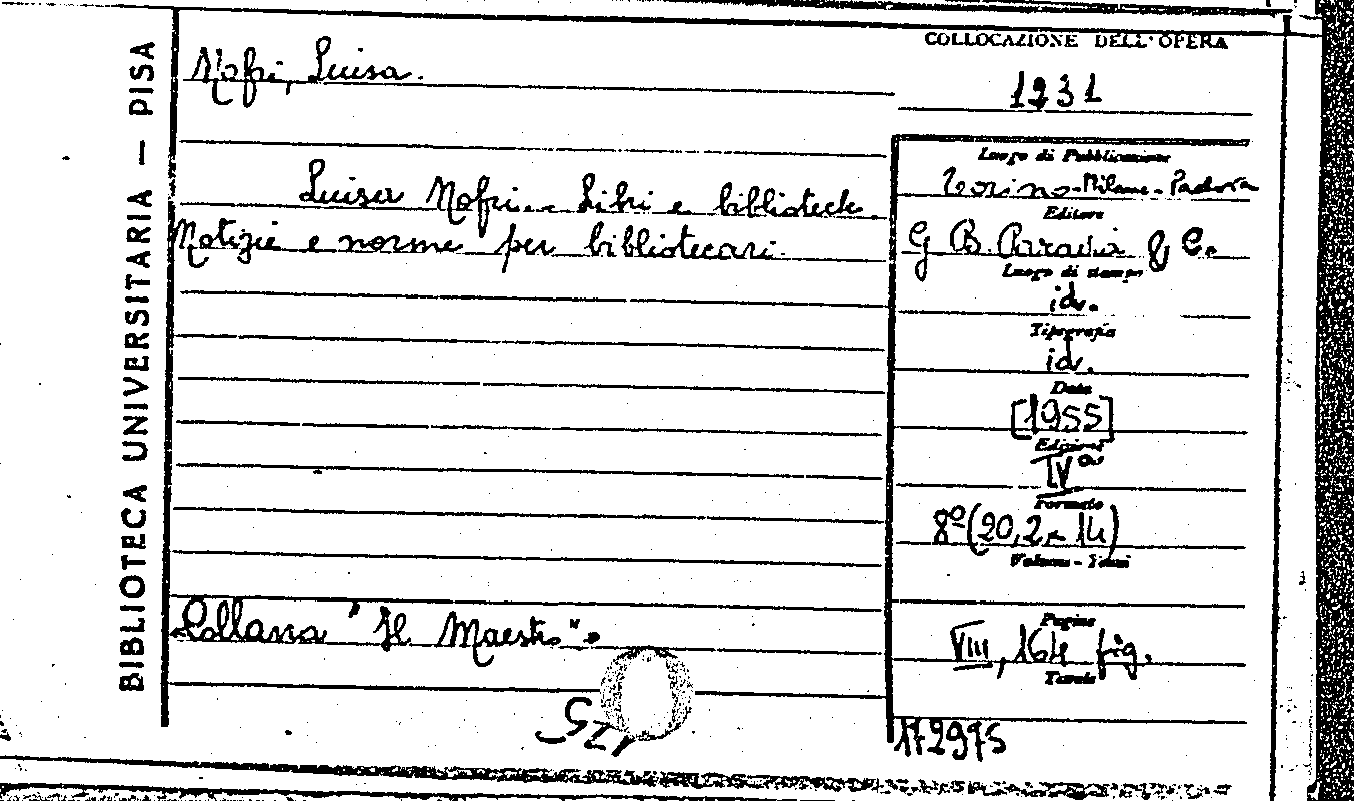 BIBLIOTECA UNIVERSITARIA — PISA
Nofri, Luisa.
Luisa Nofri.- Libri e biblioteche.
Notizie e norme per bibliotecari.
Collana "Il Maestro".
COLLOCAZIONE DELL'OPERA
1231
Luogo di Pubblicazione
Torino-Milano-Padova
Editore
G B. Paravia & C.
Luogo di stampa
id.
Tipografia
id.
Data
[1955]
Edizione
IVa
Formato
8º (20,2 x 14)
Volume - Tomi
Pagine
VIII, 164 fig.
Tavole
172975